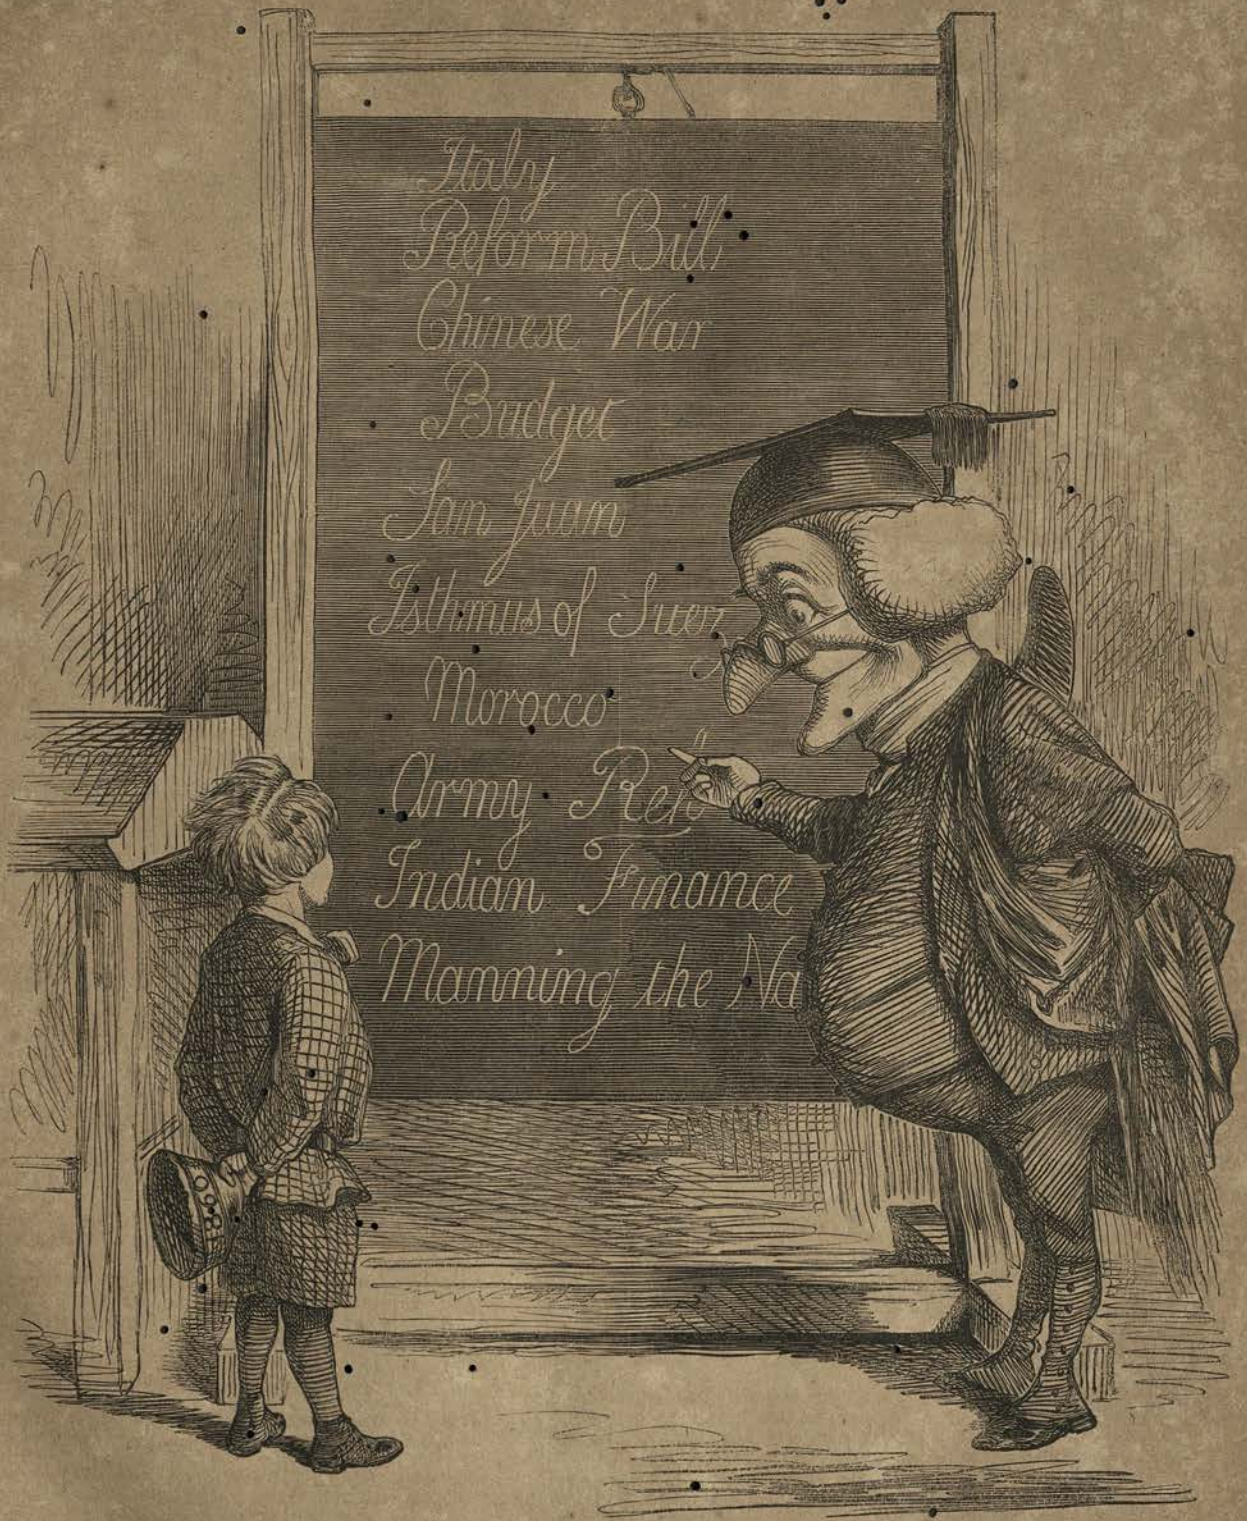 Italy
Reform Bill
Chinese War
Budget
San Juan
Isthmus of Suez
Morocco
Army Ref
Indian Finance
Manning the Na